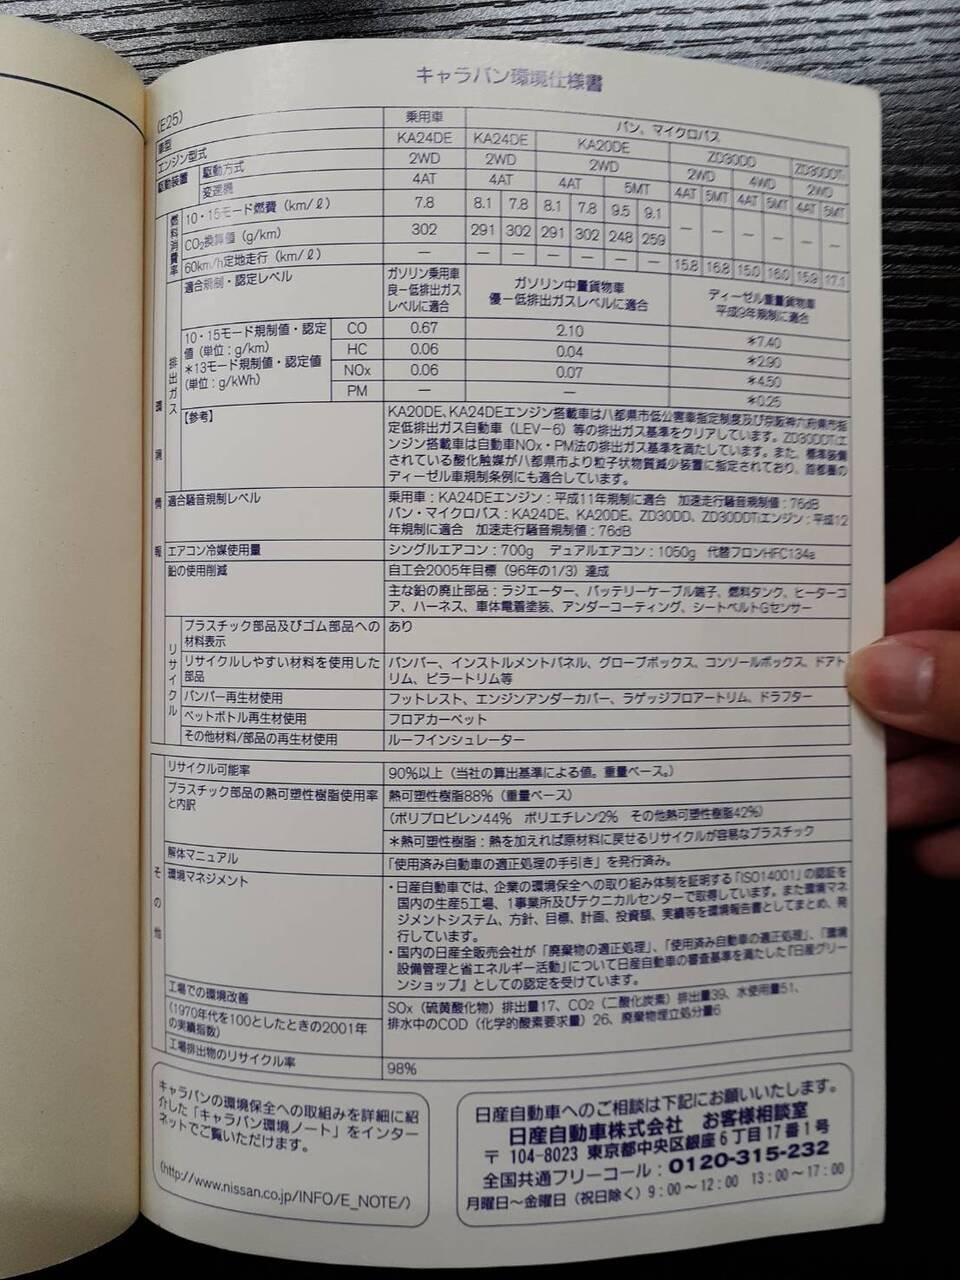 キャラバン環境仕様書
(E25)
車型 乗用車 バン、マイクロバス
エンジン型式 KA24DE KA24DE KA20DE ZD30DD ZD30DDTi
駆動装置 駆動方式 2WD 2WD 2WD 2WD 4WD 2WD
変速機 4AT 4AT 4AT 5MT 4AT 5MT 4AT 5MT 4AT 5MT
環境情報
燃料消費率
10・15モード燃費 (km/ℓ) 7.8 8.1 7.8 8.1 7.8 9.5 9.1 — — — — — —
CO2換算値 (g/km) 302 291 302 291 302 248 259
60km/h定地走行 (km/ℓ) — — — — — — — 15.8 16.8 15.0 16.0 15.9 17.1
排出ガス
適合規制・認定レベル ガソリン乗用車 良ー低排出ガス レベルに適合 ガソリン中量貨物車 優ー低排出ガスレベルに適合 ディーゼル重量貨物車 平成9年規制に適合
10・15モード規制値・認定値 (単位:g/km)
*13モード規制値・認定値 (単位:g/kWh)
CO 0.67 2.10 *7.40
HC 0.06 0.04 *2.90
NOx 0.06 0.07 *4.50
PM — — *0.25
【参考】
KA20DE、KA24DEエンジン搭載車は八都県市低公害車指定制度及び京阪神六府県市指
定低排出ガス自動車 (LEV-6) 等の排出ガス基準をクリアしています。ZD30DDTiエ
ンジン搭載車は自動車NOx・PM法の排出ガス基準を満たしています。また、標準装備
されている酸化触媒が八都県市より粒子状物質減少装置に指定されており、首都圏の
ディーゼル車規制条例にも適合しています。
適合騒音規制レベル 乗用車:KA24DEエンジン:平成11年規制に適合 加速走行騒音規制値:76dB
バン・マイクロバス:KA24DE、KA20DE、ZD30DD、ZD30DDTiエンジン:平成12
年規制に適合 加速走行騒音規制値:76dB
エアコン冷媒使用量 シングルエアコン:700g デュアルエアコン:1050g 代替フロンHFC134a
鉛の使用削減 自工会2005年目標 (96年の1/3) 達成
主な鉛の廃止部品:ラジエーター、バッテリーケーブル端子、燃料タンク、ヒーターコ
ア、ハーネス、車体電着塗装、アンダーコーティング、シートベルトGセンサー
リサイクル
プラスチック部品及びゴム部品への
材料表示 あり
リサイクルしやすい材料を使用した
部品 バンパー、インストルメントパネル、グローブボックス、コンソールボックス、ドアト
リム、ピラートリム等
バンパー再生材使用 フットレスト、エンジンアンダーカバー、ラゲッジフロアートリム、ドラフター
ペットボトル再生材使用 フロアカーペット
その他材料/部品の再生材使用 ルーフインシュレーター
その他
リサイクル可能率 90%以上 (当社の算出基準による値。重量ベース。)
プラスチック部品の熱可塑性樹脂使用率
と内訳 熱可塑性樹脂88% (重量ベース)
(ポリプロピレン44% ポリエチレン2% その他熱可塑性樹脂42%)
*熱可塑性樹脂:熱を加えれば原材料に戻せるリサイクルが容易なプラスチック
解体マニュアル 「使用済み自動車の適正処理の手引き」を発行済み。
環境マネジメント ・日産自動車では、企業の環境保全への取り組み体制を証明する「ISO14001」の認証を
国内の生産5工場、1事業所及びテクニカルセンターで取得しています。また環境マネ
ジメントシステム、方針、目標、計画、投資額、実績等を環境報告書としてまとめ、発
行しています。
・国内の日産全販売会社が「廃棄物の適正処理」、「使用済み自動車の適正処理」、「環境
設備管理と省エネルギー活動」について日産自動車の審査基準を満たした『日産グリー
ンショップ』としての認定を受けています。
工場での環境改善
(1970年代を100としたときの2001年
の実績指数) SOx (硫黄酸化物) 排出量17、CO2 (二酸化炭素) 排出量39、水使用量51、
排水中のCOD (化学的酸素要求量) 26、廃棄物埋立処分量6
工場排出物のリサイクル率 98%
キャラバンの環境保全への取組みを詳細に紹
介した「キャラバン環境ノート」をインター
ネットでご覧いただけます。
(http://www.nissan.co.jp/INFO/E_NOTE/)
日産自動車へのご相談は下記にお願いいたします。
日産自動車株式会社 お客様相談室
〒104-8023 東京都中央区銀座6丁目17番1号
全国共通フリーコール:0120-315-232
月曜日〜金曜日 (祝日除く) 9:00〜12:00 13:00〜17:00